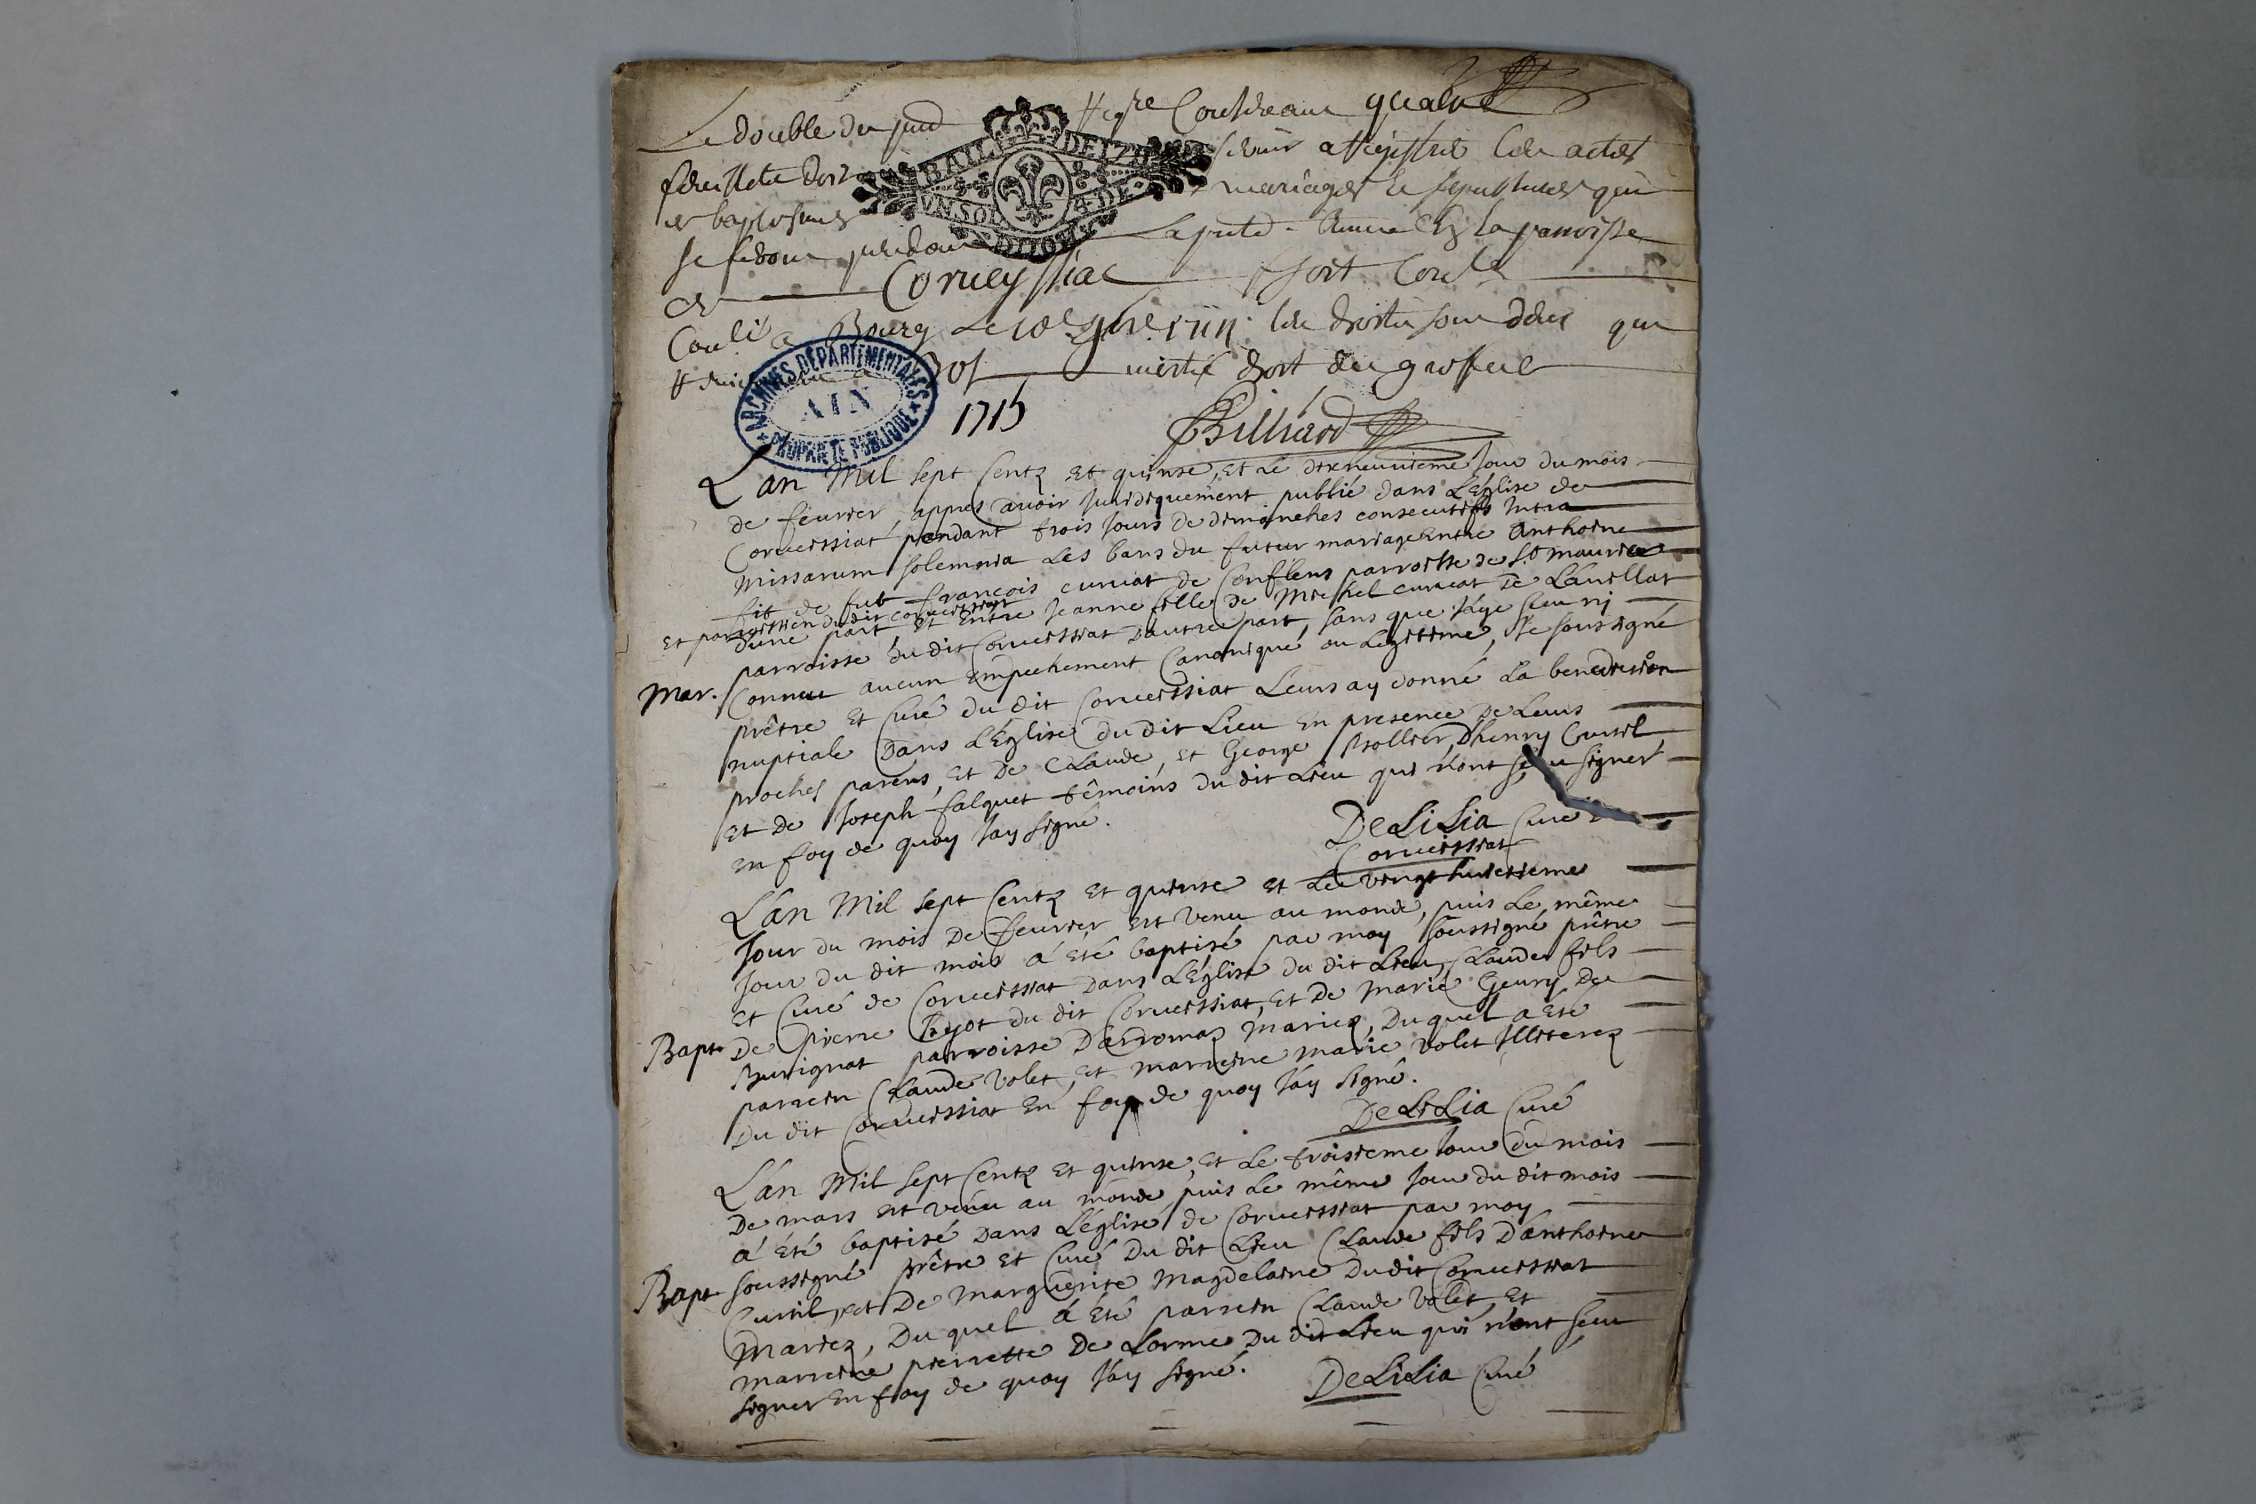 Le double du pnt Regre Contenant quatre
feuillets doit servir a Registrer les actes
de baptesmes mariages & sepultures qui
se feront pendant La pnte Année En la parroisse
de Corveyssiat
Bourg Le les droits sont deus
BAIL DE
UN SOL 4 DE.
DIJON
ARCHIVES DÉPARTEMENTALES
AIN
PROPRIÉTÉ PUBLIQUE
droit du
1715
Billiard
L'an Mil sept Centz Et quinse, Et Le dixneuvieme Jour du mois
de feuvrier, appres avoir Juridiquement publié dans L'Église de
Corveissiat pendant trois Jours de dimanches consecutifs Intra
Missarum solemnia Les bans du futur mariage Entre Anthoine
fils de fut françois curiat de Conflens parroisse de St maurice
Et parroissien dudit Corveissiat
d'une part, Et Entre Jeanne fille de Michel curiat de Lavillat
parroisse du dit Corveissiat D'autre part, sans que J'aye sceu ni
Mar. Connu aucun Empechement Canonique ou Legitime, Je soussigné
prêtre Et Curé du dit Corveissiat Leurs ay donné La benediction
nuptiale Dans L'Église du dit Lieu En presence De Leurs
proches parens, Et De Claude, Et George Rollier, D'henry Curtil,
Et De Joseph falquet têmoins du dit Lieu qui n'ont sceu signer
En foy de quoy J'ay signé.
DeLiLia Curé
Corveissiat
L'an Mil sept Centz Et quinse Et Le vingt huictieme
Jour du mois De feuvrier Est venu au monde, puis Le même
Jour du dit mois a Eté baptisé par moy soussigné prêtre
Et Curé de Corveissiat Dans L'Église du dit Lieu, Claude fils
De pierre du dit Corveissiat, Et De Marie Gevry De
Bapt. Burignat parroisse D'arromaz Mariez, Du quel a Eté
parrein Claude Volet, Et marreine Marie Volet Illiterez
Du dit Corveissiat En foy de quoy J'ay signé.
DeLiLia Curé
L'an Mil sept Centz Et quinse, Et Le troisieme Jour du mois
De mars Est venu au monde puis Le même Jour du dit mois
a Eté baptisé Dans L'église de Corveissiat par moy
soussigné Prêtre Et Curé Du dit Lieu Claude fils D'anthoine
Bapt Curtil, Et De Marguerite Magdelaine Du dit Corveissiat
Mariez, Du quel a Eté parrein Claude Volet, Et
marreine pierrette De Lorme Du dit Lieu qui n'ont sceu
signer En foy de quoy J'ay signé.
DeLiLia Curé